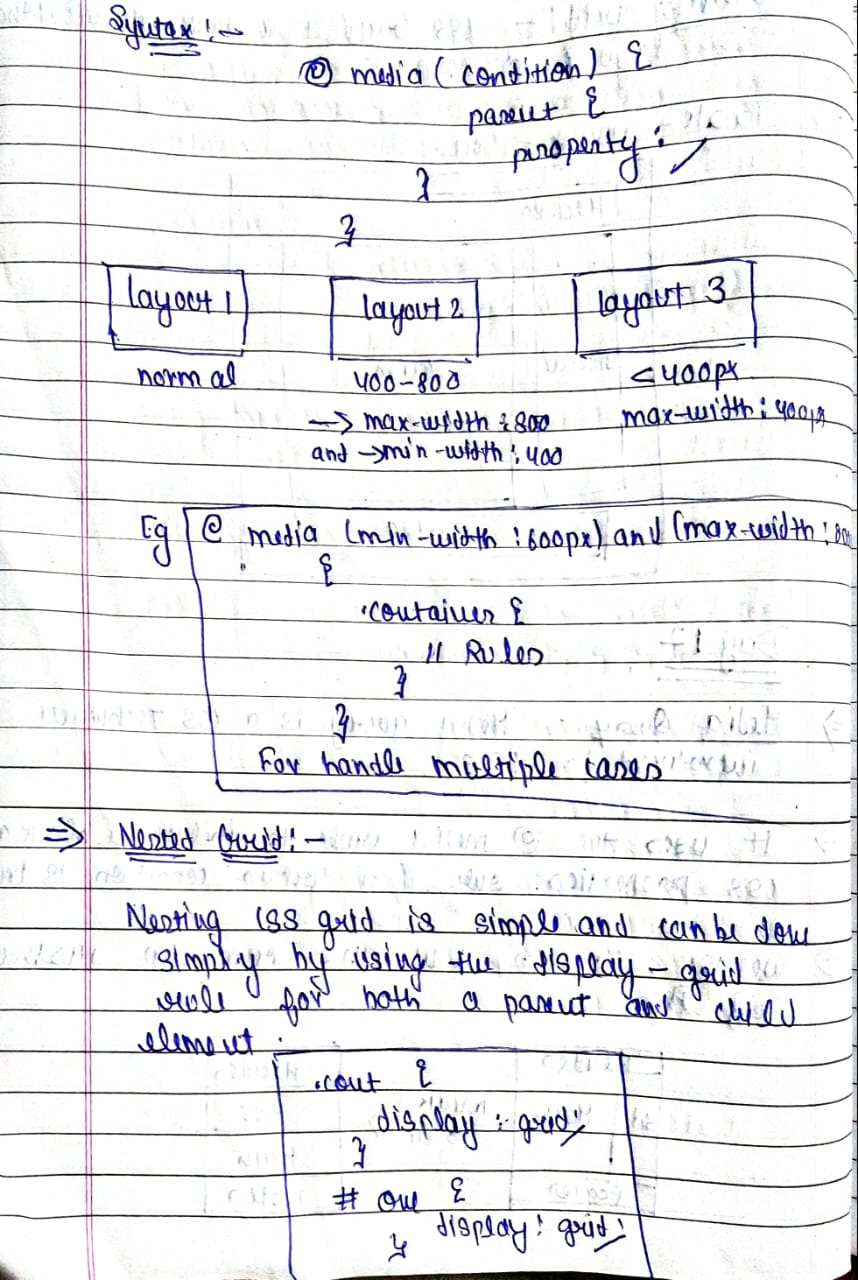 Syntax :~
@ media ( condition ) {
parent {
property :
}
}
layout 1
layout 2
layout 3
normal
400-800
<400px
→ max-width : 800
max-width : 400px
and → min-width : 400
Eg
@ media (min-width : 600px) and (max-width : 800
{
.container {
// Rules
}
}
For handle multiple cases
⇒ Nested Grid :-
Nesting CSS grid is simple and can be done
simply by using the display - grid
rule for both a parent and child
element .
.cont {
display : grid;
}
# one {
display : grid;
}